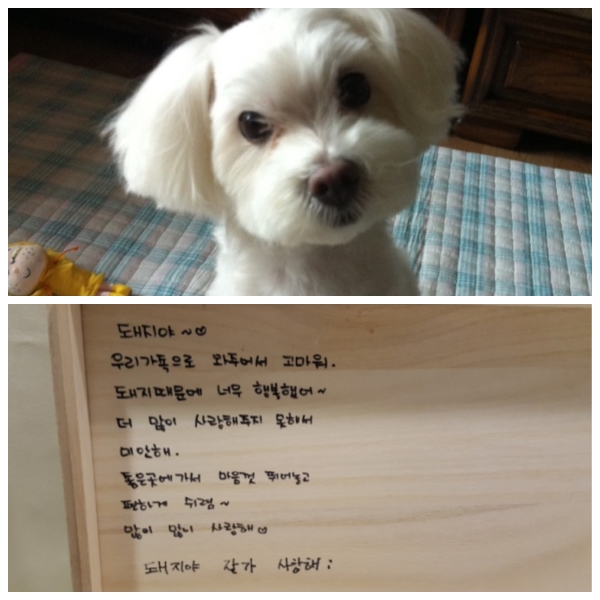 돼지야~♡
우리가족으로 와주어서 고마워.
돼지때문에 너무 행복했어~
더 많이 사랑해주지 못해서
미안해.
좋은곳에가서 마음껏 뛰어놀고
편하게 쉬렴~
많이 많이 사랑해♡
돼지야 잘가 사랑해;